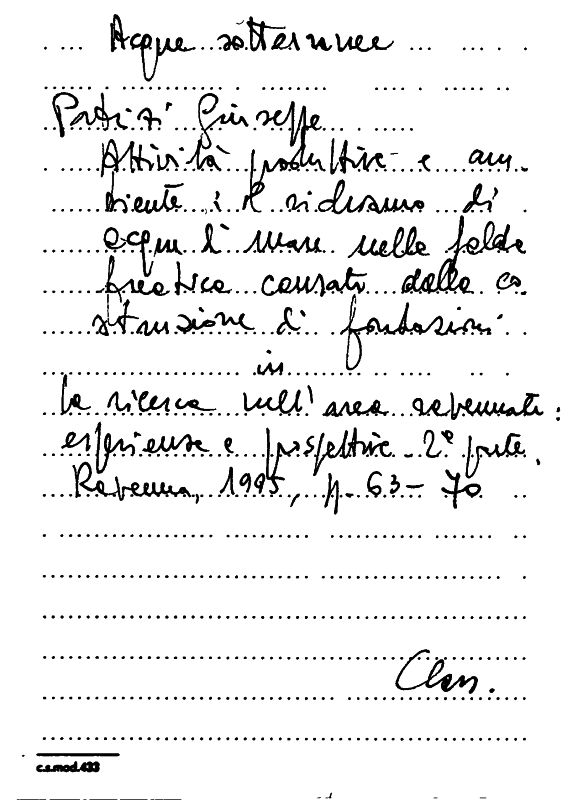 Acque sotterranee
Patrizi Giuseppe
Attività produttive e am-
biente: il richiamo di
acqua di mare nella falda
freatica causato dalla co-
struzione di fondazioni
in
la ricerca nell'area ravennate:
esperienze e prospettive - 2ª parte.
Ravenna, 1995, p. 63-70
Class.
c.s.mod.433